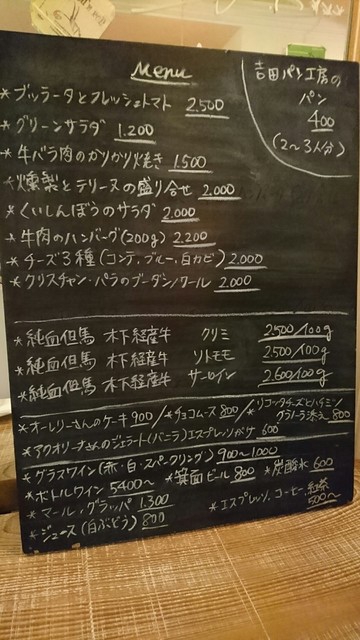 Menu
吉田パン工房の
パン
400
(2〜3人分)
* ブッラータとフレッシュトマト 2,500
* グリーンサラダ 1.200
* 牛バラ肉のカリカリ焼き 1.500
* 燻製とテリーヌの盛り合せ 2.000
* くいしんぼうのサラダ 2.000
* 牛肉のハンバーグ(200g) 2.200
* チーズ3種(コンテ、ブルー、白カビ) 2.000
* クリスチャン・パラのブーダン/ワール 2.000
* 純血但馬 木下経産牛 クリミ 2500/100g
* 純血但馬 木下経産牛 リトモモ 2500/100g
* 純血但馬 木下経産牛 サーロイン 2.600/100g
* オーレリーさんのケーキ 900 / * チョコムース 800 / * リコッタチーズとハチミツ
グラノーラ添え 800
* アクオリーナさんのジェラート(バニラ)エスプレッソがけ 600
* グラスワイン(赤・白・スパークリング) 900〜1000
* ボトルワイン 5400〜 * 箕面ビール 800 * 炭酸水 600
* マール、グラッパ 1.300
* エスプレッソ、コーヒー、紅茶
500〜
* ジュース(白ぶどう) 800